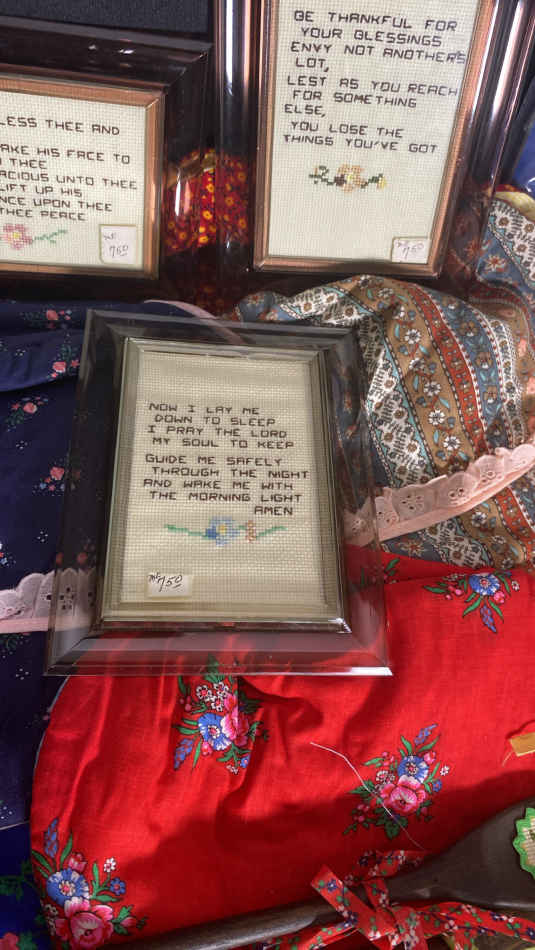 LESS THEE AND
AKE HIS FACE TO
THEE
ACIOUS UNTO THEE
LIFT UP HIS
NCE UPON THEE
THEE PEACE
750
BE THANKFUL FOR
YOUR BLESSINGS
ENVY NOT ANOTHERS
LOT,
LEST AS YOU REACH
FOR SOMETHING
ELSE,
YOU LOSE THE
THINGS YOU'VE GOT
750
NOW I LAY ME
DOWN TO SLEEP
I PRAY THE LORD
MY SOUL TO KEEP
GUIDE ME SAFELY
THROUGH THE NIGHT
AND WAKE ME WITH
THE MORNING LIGHT
AMEN
750